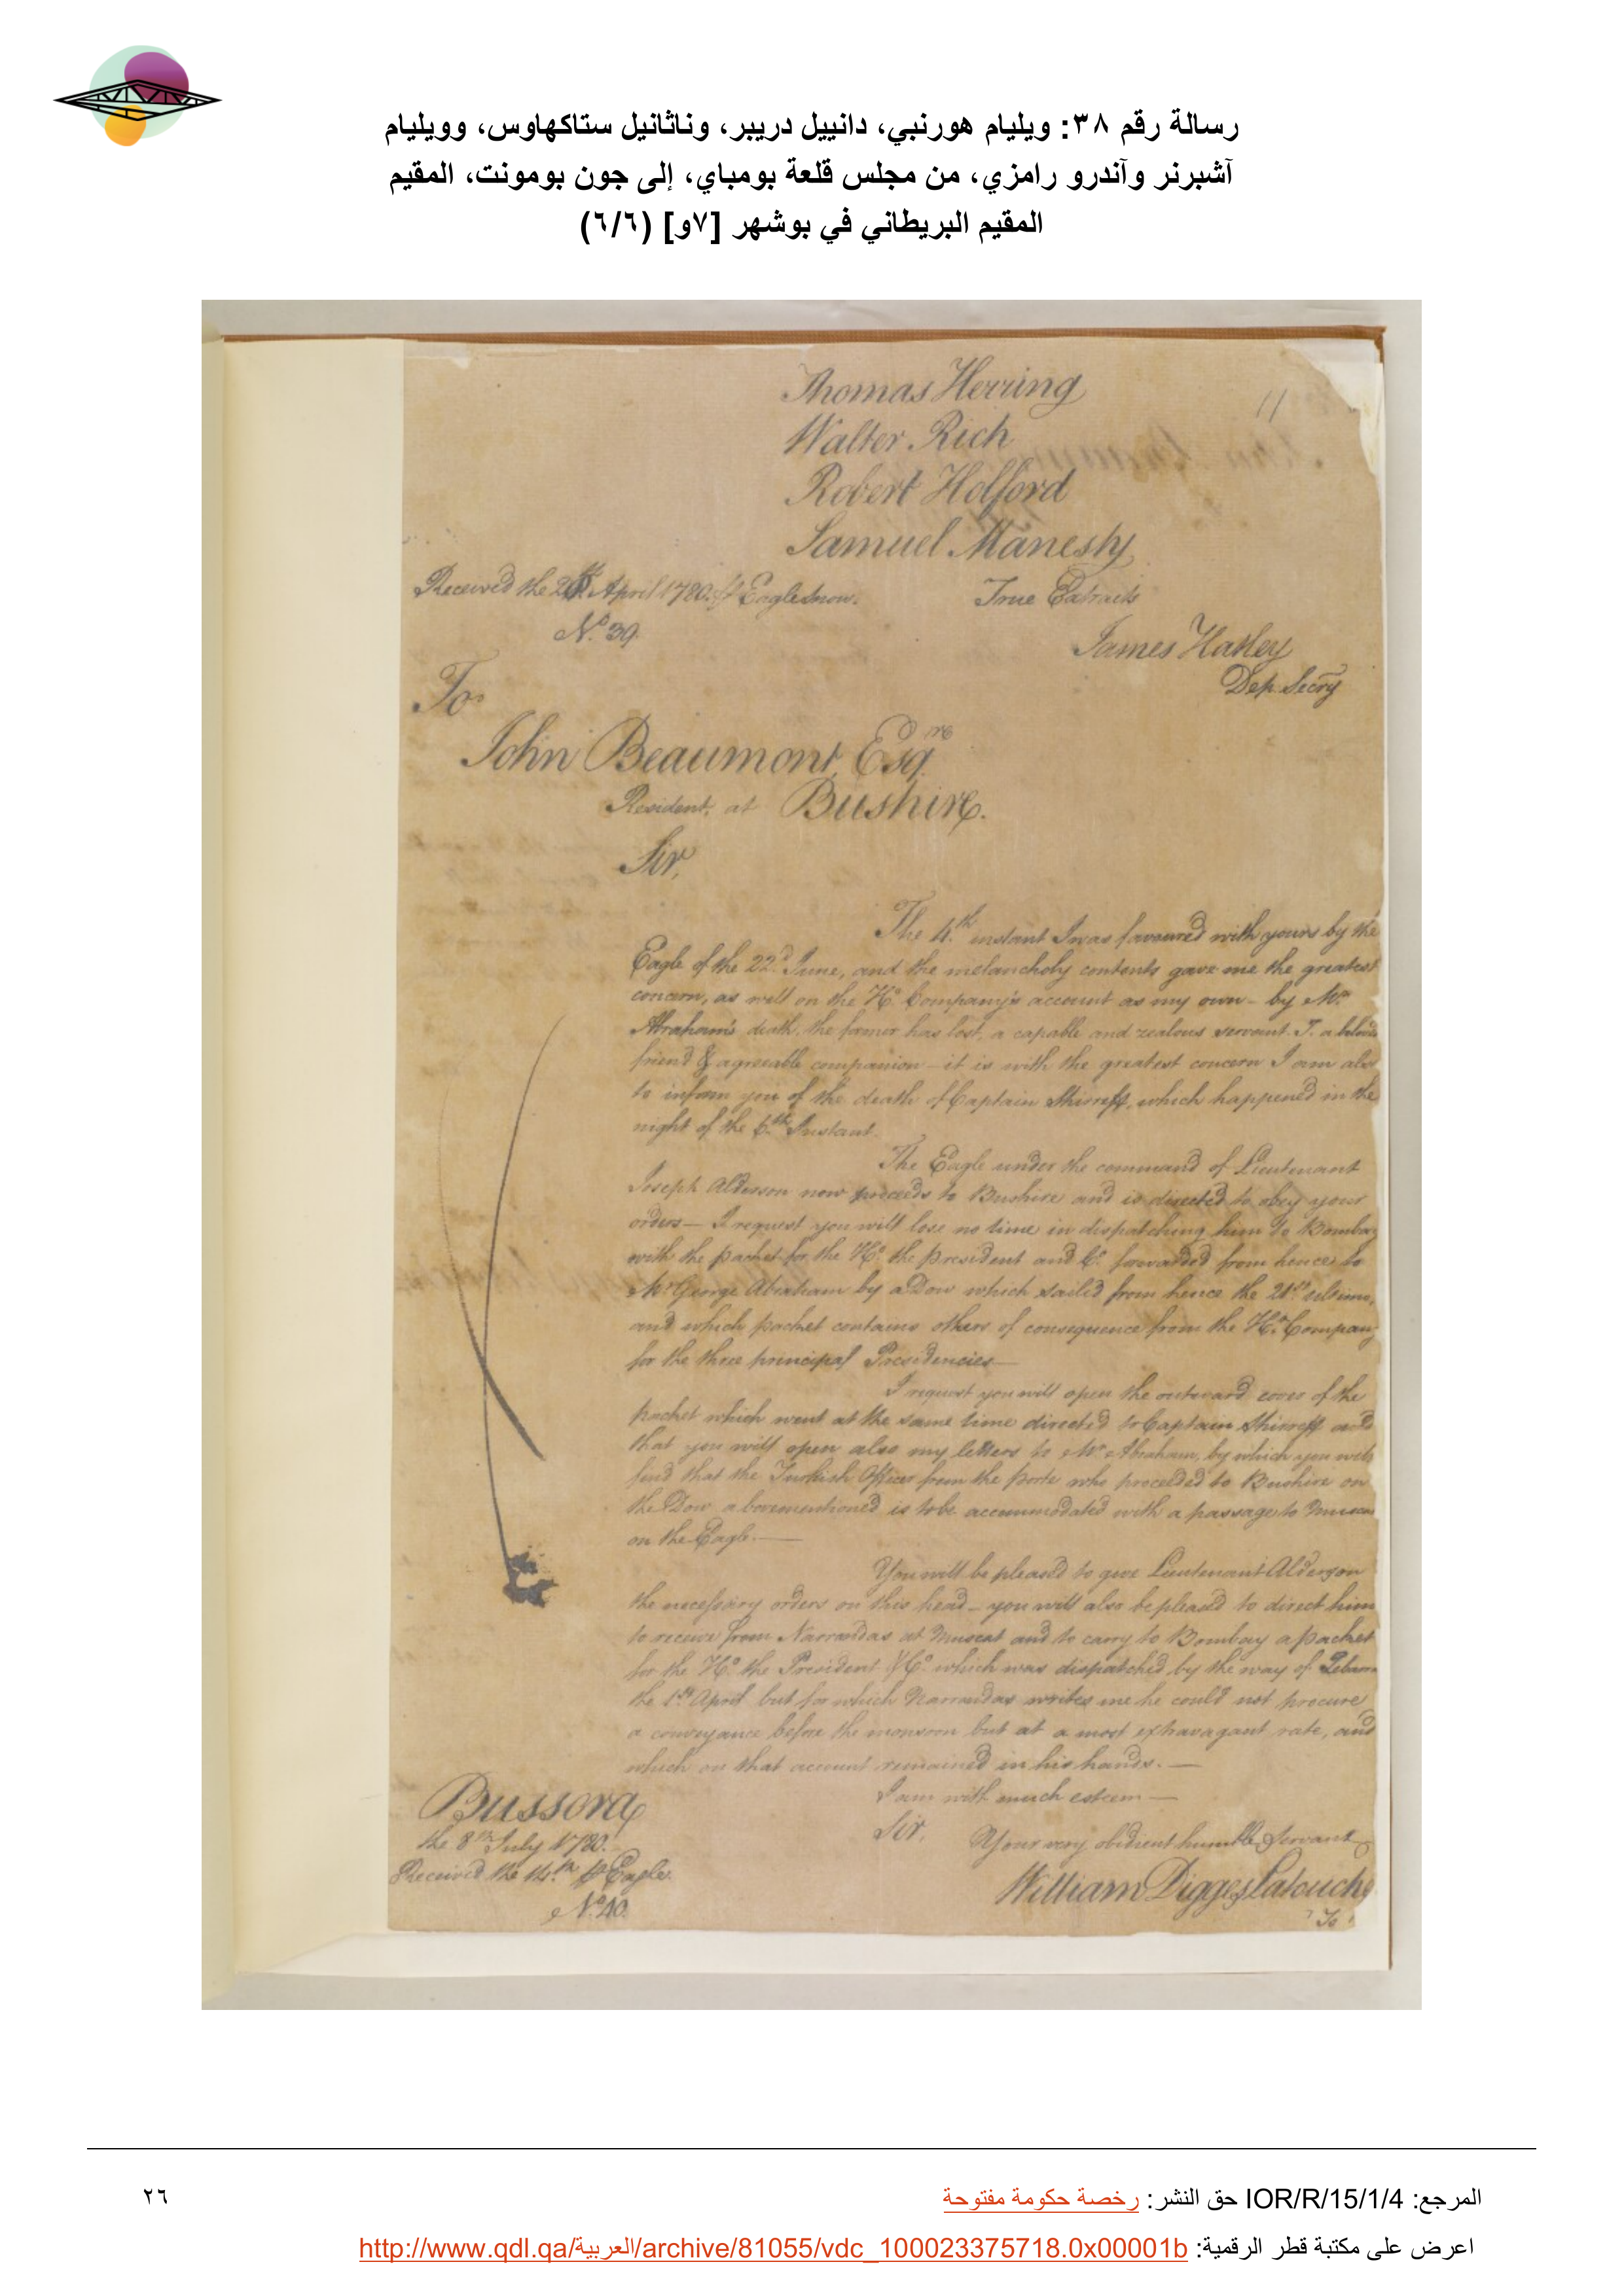 رسالة رقم ٣٨: ويليام هورنبي، دانييل دريبر، وناثانيل ستاكهاوس، وويليام
آشبرنر وآندرو رامزي، من مجلس قلعة بومباي، إلى جون بومونت، المقيم
المقيم البريطاني في بوشهر [٧و] (٦/٦)
Thomas Herring
Walter Rich
Robert Holford
Samuel Manesty
11
Received the April 1780. Eagle Snow.
True Extracts
No. 39.
James Hatley
Dep. Secry
To
John Beaumont, Esqre
Resident, at Bushire.
Sir,
The 4.th instant I was favoured with yours by the
Eagle of the 22d June, and the melancholy contents gave me the greatest
concern, as well on the Ho. Company's account as my own - by Mr.
Abraham's death, the former has lost, a capable and zealous servant. I. a
friend & agreeable companion - it is with the greatest concern I am also
to inform you of the death of Captain Shirreff, which happened in the
night of the 6.th Instant.
The Eagle under the command of Lieutenant
Joseph Alderson now proceeds to Bushire and is directed to obey your
orders - I request you will lose no time in dispatching him to Bombay
with the packet for the Ho. the president and Co. forwarded from hence to
Mr George Abraham by a Dow which sailed from hence the 21st ultimo,
and which packet contains others of consequence from the Ho. Company
for the three principal Presidencies -
I request you will open the outward cover of the
packet which went at the same time directed to Captain Shirreff and
that you will open also my letters to Mr. Abraham, by which you will
find that the Turkish Officer from the porte who proceeded to Bushire on
the Dow abovementioned is to be accommodated with a passage to
on the Eagle. -
You will be pleased to give Lieutenant Alderson
the necessary orders on this head - you will also be pleased to direct him
to receive from Narrandas at Muscat and to carry to Bombay a packet
for the Ho. the President & Co. which was dispatched by the way of
the 1st April but for which Narrandas writes me he could not procure
a conveyance before the monsoon but at a most extravagant rate, and
which on that account remained in his hands. -
I am with much esteem -
Sir,
Your very obedient humble Servant
William Digges Latouche
Bussora
the 8th July 1780.
Received the 14.th Eagle.
No. 40.
To
المرجع: IOR/R/15/1/4 حق النشر: رخصة حكومة مفتوحة
٢٦
اعرض على مكتبة قطر الرقمية: http://www.qdl.qa/العربية/archive/81055/vdc_100023375718.0x00001b